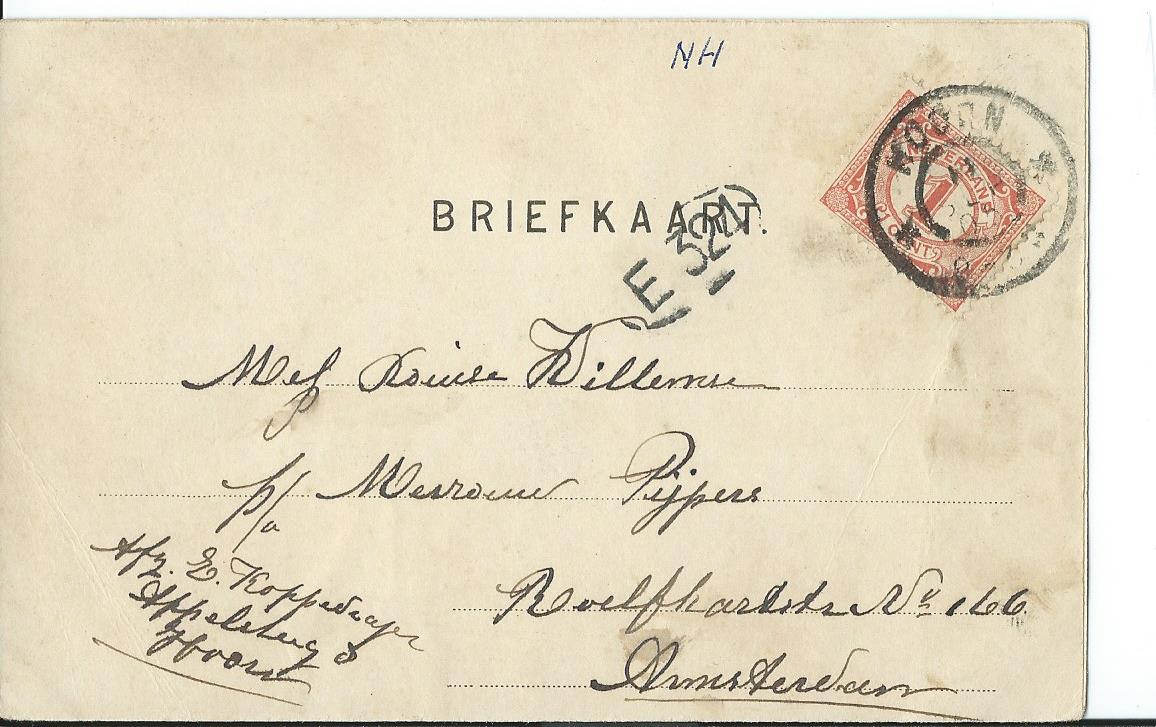 NH
HOORN
NEDERLAND
1
1 CENT
BRIEFKAART.
E 321
Mej Louise Willemse
p/a Mevrouw Pijpers
Roelfhartstr No 166
Amsterdam
Afz. E. Koppedraijer
Appelsteeg 8
Hoorn